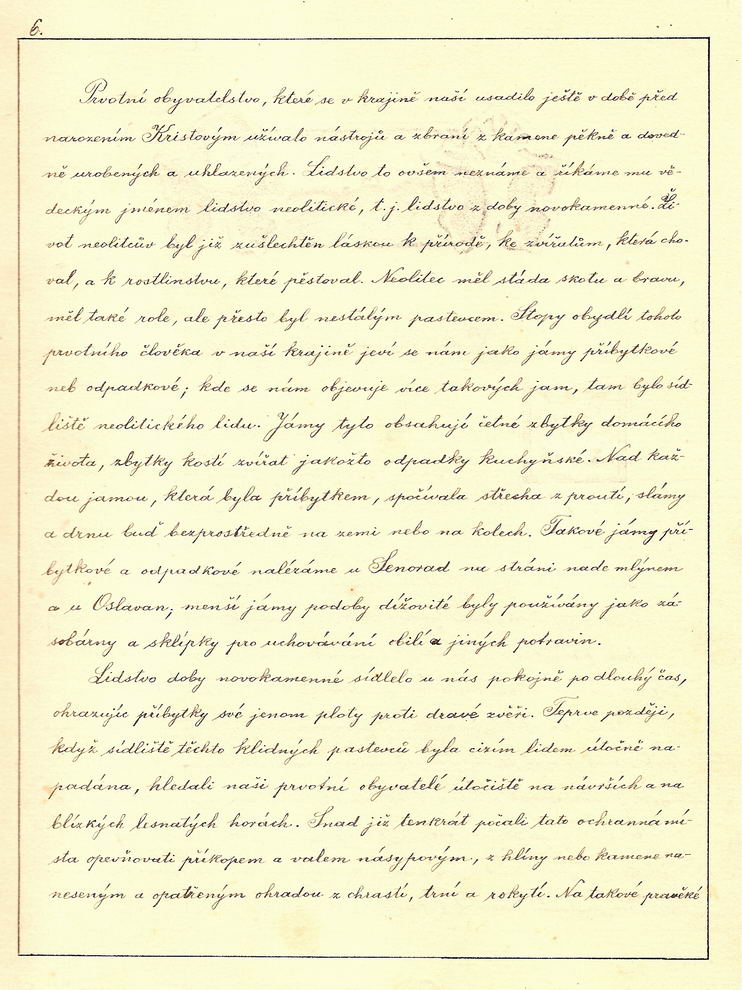 6.
Prvotní obyvatelstvo, které se v krajině naší usadilo ještě v době před
narozením Kristovým užívalo nástrojů a zbraní z kamene pěkně a doved-
ně urobených a uhlazených. Lidstvo to ovšem neznáme a říkáme mu vě-
deckým jménem lidstvo neolitické, t. j. lidstvo z doby novokamenné. Ži-
vot neolitcův byl již zušlechtěn láskou k přírodě, ke zvířatům, která cho-
val, a k rostlinstvu, které pěstoval. Neolitec měl stáda skotu a bravu,
měl také role, ale přesto byl nestálým pastevcem. Stopy obydlí tohoto
prvotního člověka v naší krajině jeví se nám jako jámy příbytkové
neb odpadkové; kde se nám objevuje více takových jam, tam bylo síd-
liště neolitického lidu. Jámy tyto obsahují četné zbytky domácího
života, zbytky kostí zvířat jakožto odpadky kuchyňské. Nad kaž-
dou jamou, která byla příbytkem, spočívala střecha z proutí, slámy
a drnu buď bezprostředně na zemi nebo na kolech. Takové jámy pří-
bytkové a odpadkové nalézáme u Senorad na stráni nade mlýnem
a u Oslavan; menší jámy podoby dížovité byly používány jako zá-
sobárny a sklípky pro uchovávání obilí a jiných potravin.
Lidstvo doby novokamenné sídlelo u nás pokojně po dlouhý čas,
ohrazujíc příbytky své jenom ploty proti dravé zvěři. Teprve později,
když sídliště těchto klidných pastevců byla cizím lidem útočně na-
padána, hledali naši prvotní obyvatelé útočiště na návrších a na
blízkých lesnatých horách. Snad již tenkrát počali tato ochranná mí-
sta opevňovati příkopem a valem násypovým, z hlíny nebo kamene na-
neseným a opatřeným ohradou z chrastí, trní a rokytí. Na takové pravěké